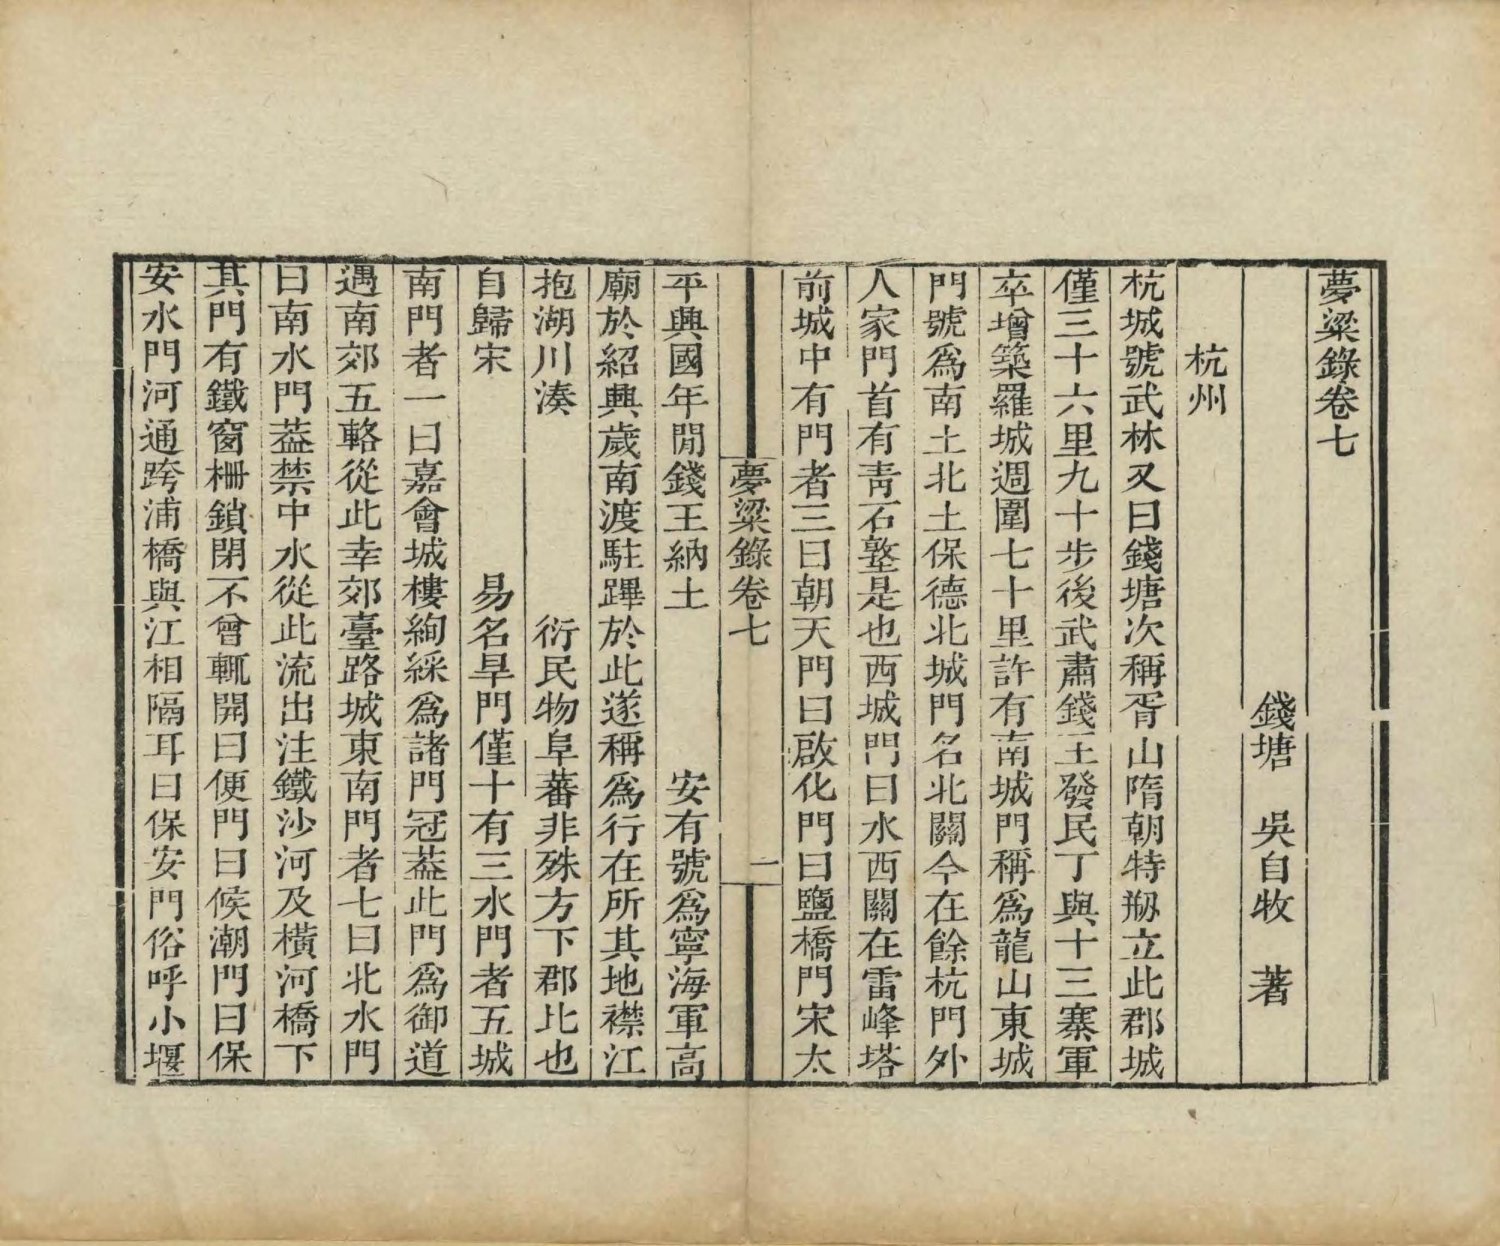 夢粱錄卷七
錢塘　吳自牧　著
杭州
杭城號武林又曰錢塘次稱胥山隋朝特剏立此郡城
僅三十六里九十步後武肅錢王發民丁與十三寨軍
卒增築羅城週圍七十里許有南城門稱爲龍山東城
門號爲南土北土保德北城門名北關今在餘杭門外
人家門首有靑石墪是也西城門曰水西關在雷峰塔
前城中有門者三曰朝天門曰啟化門曰鹽橋門宋太
夢粱錄卷七
一
平興國年閒錢王納土　　　　安有號爲寧海軍高
廟於紹興歲南渡駐蹕於此遂稱爲行在所其地襟江
抱湖川湊　　　　　衍民物阜蕃非殊方下郡比也
自歸宋　　　　　易名旱門僅十有三水門者五城
南門者一曰嘉會城樓絢綵爲諸門冠葢此門爲御道
遇南郊五輅從此幸郊臺路城東南門者七曰北水門
曰南水門葢禁中水從此流出注鐵沙河及橫河橋下
其門有鐵窗柵鎖閉不曾輒開曰便門曰候潮門曰保
安水門河通跨浦橋與江相隔耳曰保安門俗呼小堰